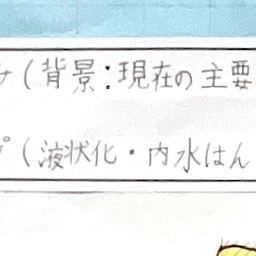 (背景:現在の主要
プ(液状化・内水はん